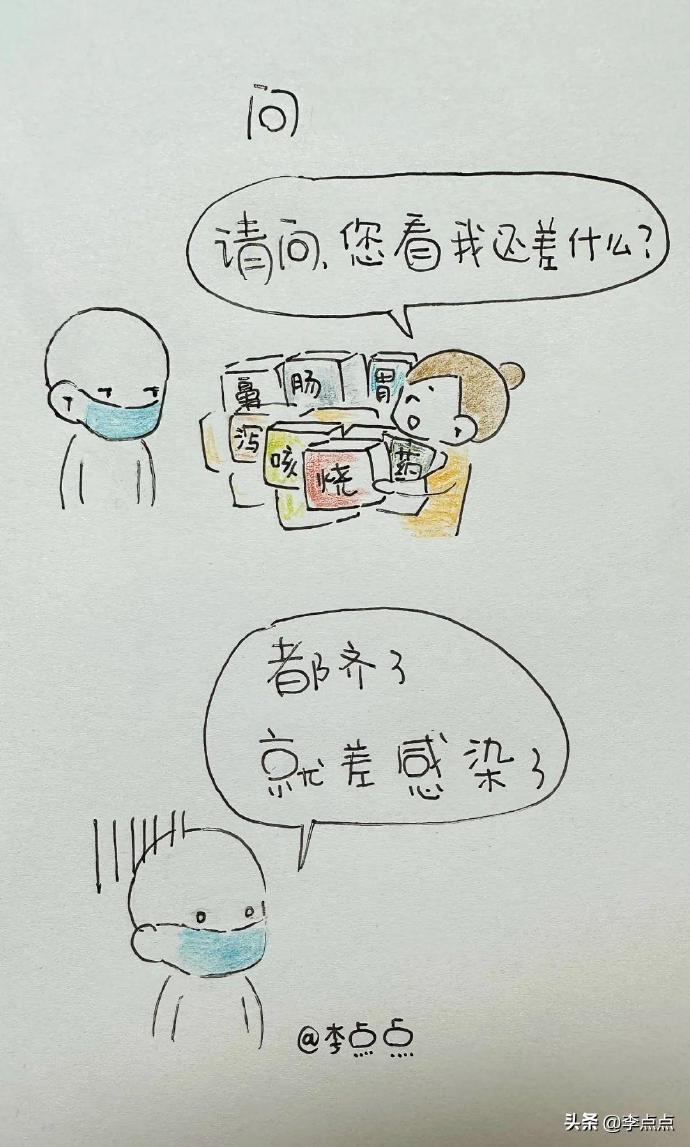 问
请问、您看我还差什么？
鼻 肠 胃
泻 咳 烧 药
都齐了
就差感染了
@李点点
头条 @李点点